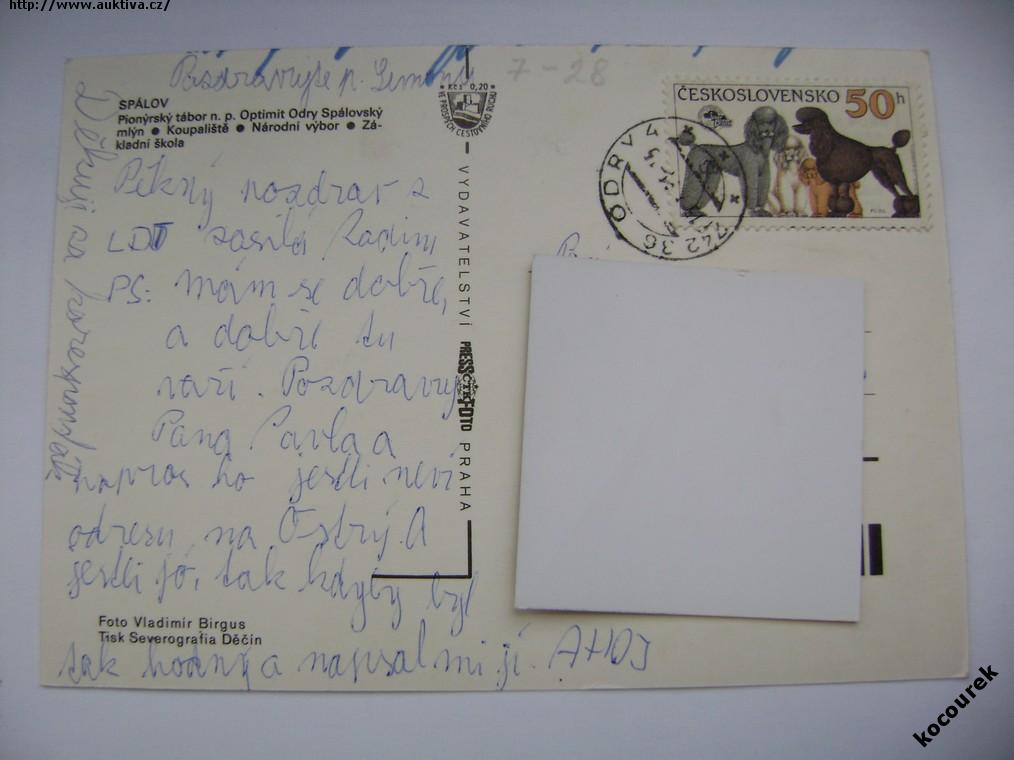 http://www.auktiva.cz/
Pozdravujte p.
7-28
SPÁLOV
Pionýrský tábor n. p. Optimit Odry Spálovský
mlýn ● Koupaliště ● Národní výbor ● Zá-
kladní škola
Kčs 0,20
VE PROSPĚCH CESTOVNÍHO RUCHU
ČESKOSLOVENSKO 50h
ODRY 4
742 36
Pěkný pozdrav z
LDT zasílá Radim
PS: Mám se dobře,
a dobře tu
vaří. Pozdravuj
Pana Pavla a
napros ho jestli neví
adresu na Ostrý. A
jestli jó, tak kdyby byl
tak hodný a napsal mi jí. AHOJ
Děkuji za
VYDAVATELSTVÍ PRESSFOTO PRAHA
ČTK
Foto Vladimír Birgus
Tisk Severografia Děčín
kocourek